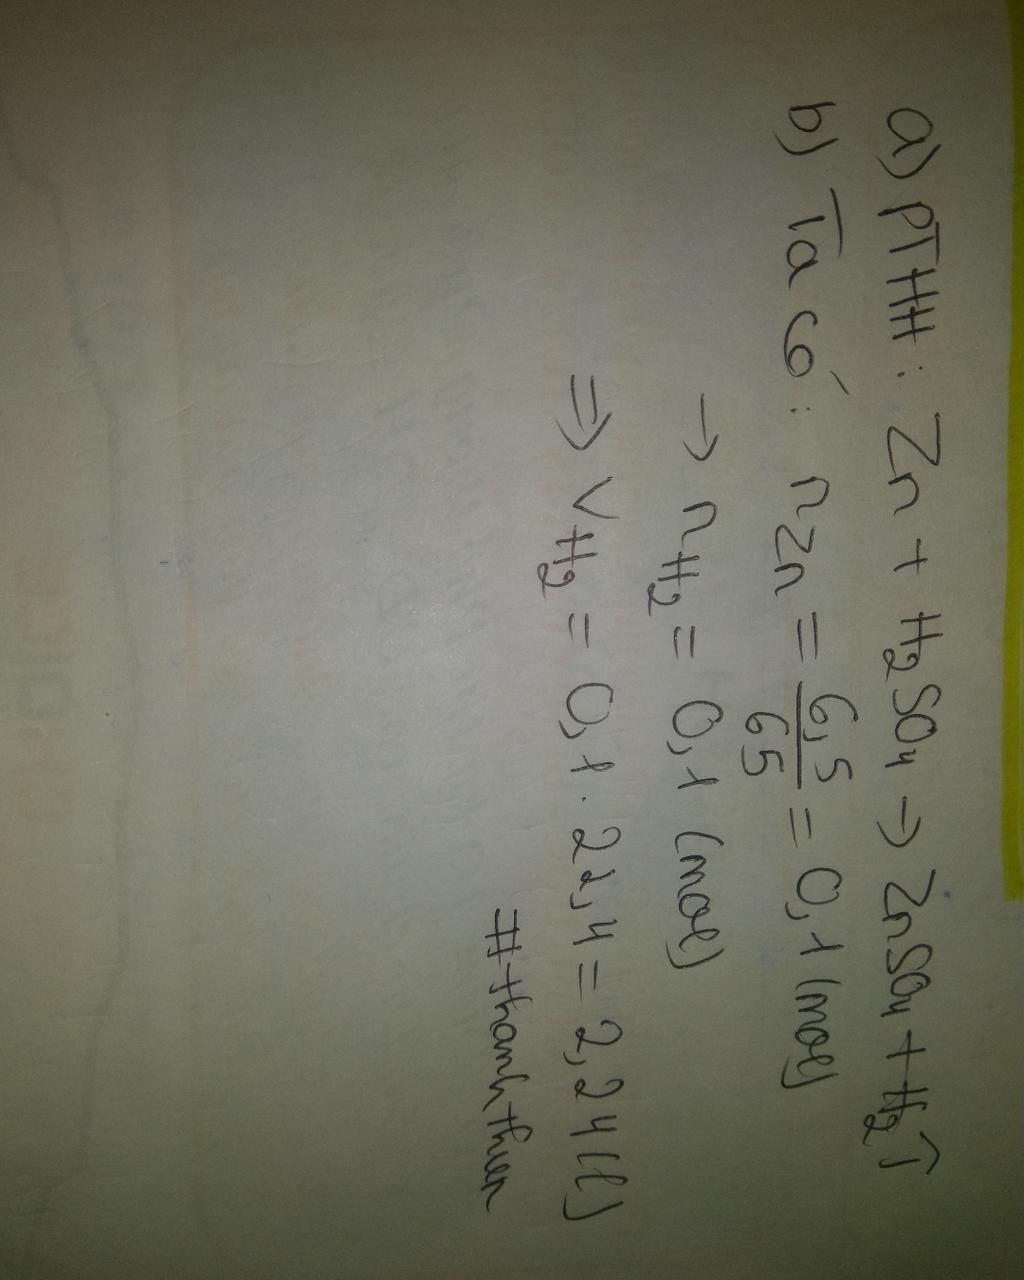 a) PTHH: Zn + H₂SO₄ → ZnSO₄ + H₂↑
b) Ta có: nZn = 6,5/65 = 0,1 (mol)
→ nH₂ = 0,1 (mol)
⇒ VH₂ = 0,1 . 22,4 = 2,24 (l)
#thanhthien